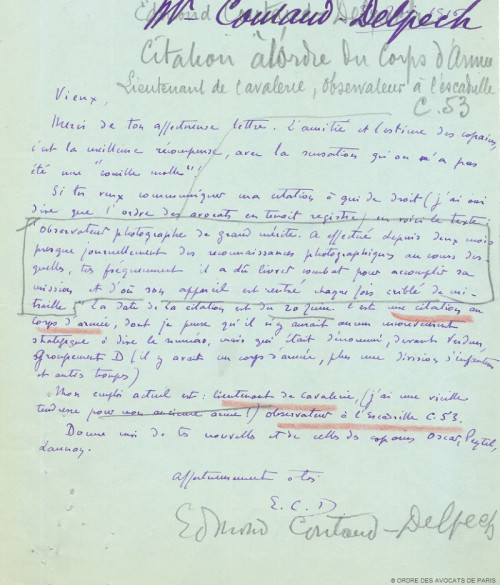 Mr Coutaud-Delpech
Edmond
Citation à l'ordre du Corps d'Armée
Lieutenant de Cavalerie, observateur à l'escadrille
C.53
Vieux,
Merci de ton affectueuse lettre. L'amitié et l'estime des copains,
c'est la meilleure récompense, avec la sensation qu'on n'a pas
été une "couille molle".
Si tu veux communiquer ma citation à qui de droit (j'ai ouï
dire que l'ordre des avocats en tenait registre) en voici le texte
"observateur photographe de grand mérite. A effectué depuis deux mois
presque journellement des reconnaissances photographiques au cours des-
quelles, très fréquemment il a dû livrer combat pour accomplir sa
mission et d'où son appareil est rentré chaque fois criblé de mi-
traille" La date de la citation est du 20 Juin. C'est une citation au
corps d'armée, dont je pense qu'il n'y aurait aucun inconvénient
stratégique à dire le numéro, mais qui était dénommé, devant Verdun,
groupement D (il y avait un corps d'armée, plus une division d'infanterie
et autres troupes)
Mon emploi actuel est : lieutenant de cavalerie, (j'ai une vieille
tendresse pour mon ancienne arme !) observateur à l'Escadrille C.53.
Donne moi de tes nouvelles et de celles des copains Oscar, Peytel,
Launay.
Affectueusement à toi
E.C.D
Edmond Coutaud-Delpech
© ORDRE DES AVOCATS DE PARIS